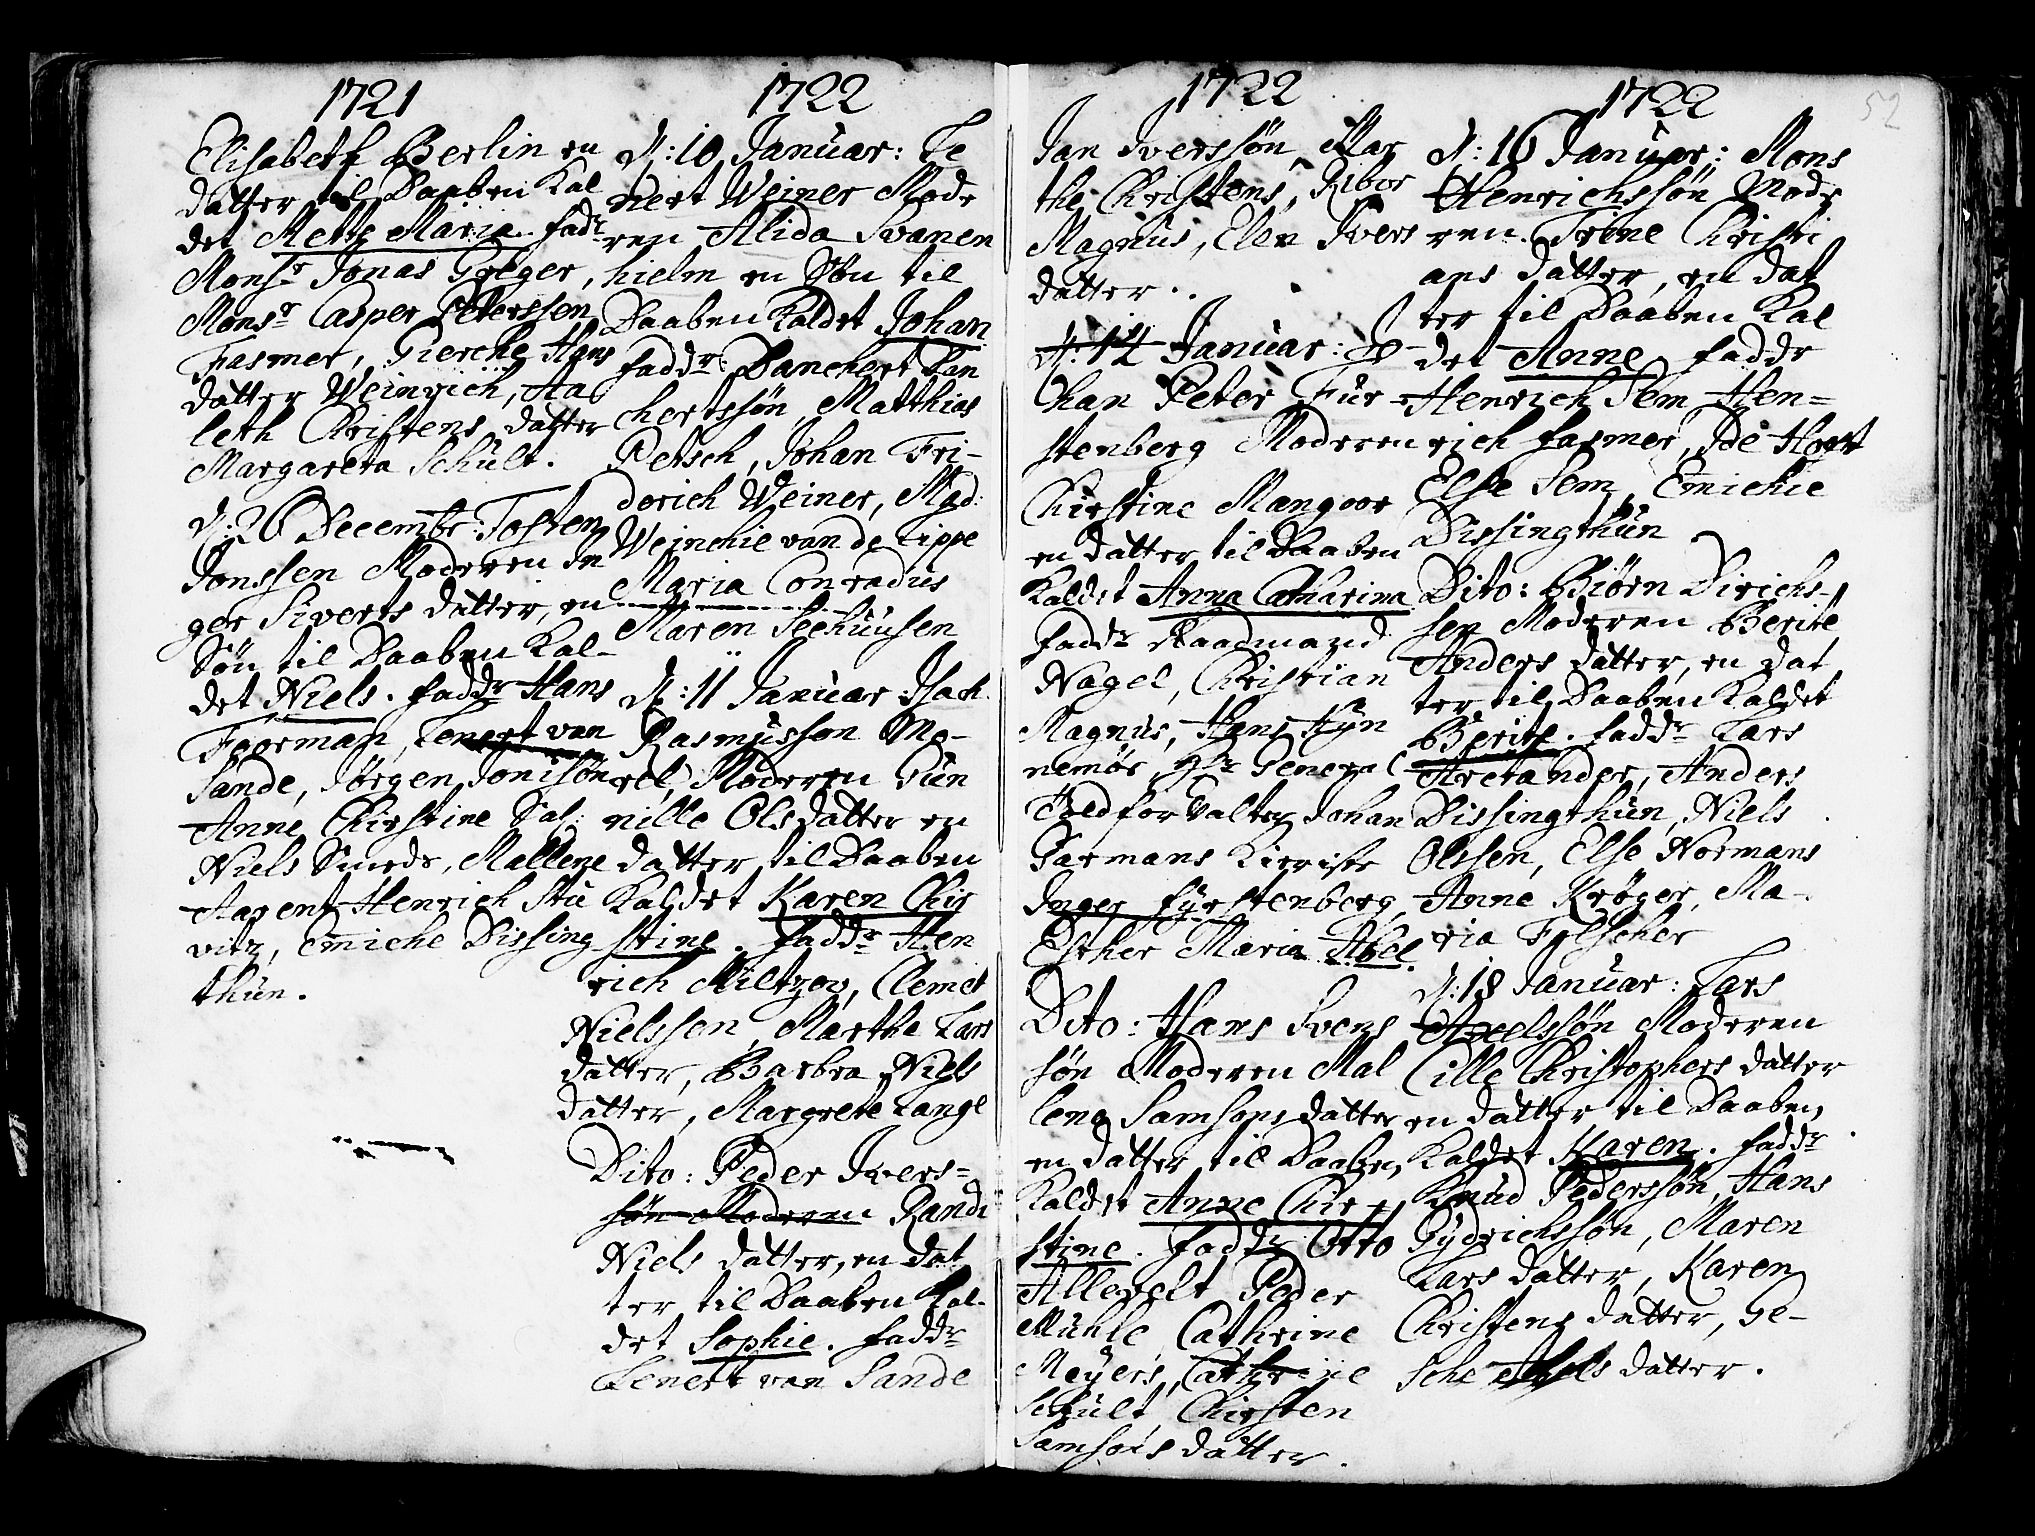 1721
Elisabeth Berlin en
datter til Daaben kal
det Mette Maria. fadr
Monsr Jonas Greger,
Monsr Casper Peterssen
Fasmer, Gierche Hans
datter Weinrich, Aa
leth Christens datter
Margareta Schult.
d: 26 Decembr: Tosten
Jonssen Moderen In
ger Siverts datter, en
Søn til Daaben kal-
det Niels. faddr Hans
Foorman, Lenert van
Sande, Jørgen Jonisøn
Anne Chirstine Sal:
Niels Smeds, Mallene
Aarent Henrich Stu
vitz, Emiche Dissing
thun.
1722
d: 10 Januar: Le
nert Weiner Mode
ren Alida Svanen
hielm en Søn til
Daaben kaldet Johan
faddr Danchert Dan
chertssøn, Matthias
Petsch, Johan Fri-
derich Weiner, Mad:
Weinchie van de Lippe
Maria Conradius
Maren Seehuusen
d: 11 Januar: Isach
Rasmusson Mo-
rel, Moderen Gun
nille Olsdatter en
datter til Daaben
kaldet Karen Chir
stine. faddr Hen
rich Miltzov, Clemet
Nielssen, Marthe Lars
datter, Barbra Niels
datter, Margrete Lange
Dito: Peder Ivers=
søn Moderen Randi
Niels datter, en dat
ter til Daaben kal-
det Sophie. faddr
Lenert van Sande
1722
Jan Iverssøn, Mar
the Christens, Ribor
Magnus, Elen Ivers
datter.
d: 14 Januar: Jo-
han Peter Für-
stenberg Moderen
Chirstine Mangoor
en datter til Daaben
kaldet Anna Catharina
faddr Raadmand
Nagel, Christian
Magnus, Hans Hyn
nemör, Hr General
Feldforvalter Johan
Garmans Kieriste
Inger Fyrstenberg,
Esther Maria Abel.
Dito: Hans Svens
søn Moderen Mal
lena Samsons datter
en datter til Daaben
kaldet Anne Chir-
stine. faddr Otto
Allevelt Peder
Muhle, Cathrine
Meyers, Cathrine
Schult, Chirsten
Samsons datter.
1722
52
d: 16 Januar: Mons
Henrichssøn Mode
ren Trine Christi
ans datter, en dat
ter til Daaben kal
det Anne faddr
Henrich Sem Hen=
rich fasmer, Ide Hoet
Else Sem, Emichie
Dissingthun
Dito: Biørn Dirichs-
sen Moderen Berite
Anders datter, en dat
ter til Daaben kaldet
Berite. faddr Lars
Arctander, Anders
Dissingthun, Niels
Olssen, Else Normans
Anne Krøger, Ma-
ria Fylscher
d: 18 Januar: Lars
Axelssøn Moderen
Cille Christophers datter
en datter til Daaben
kaldet Karen. faddr
Knud Pederssøn, Hans
Gydrichssøn, Maren
Lars datter, Karen
Christens datter, Ge-
sche Axels datter.